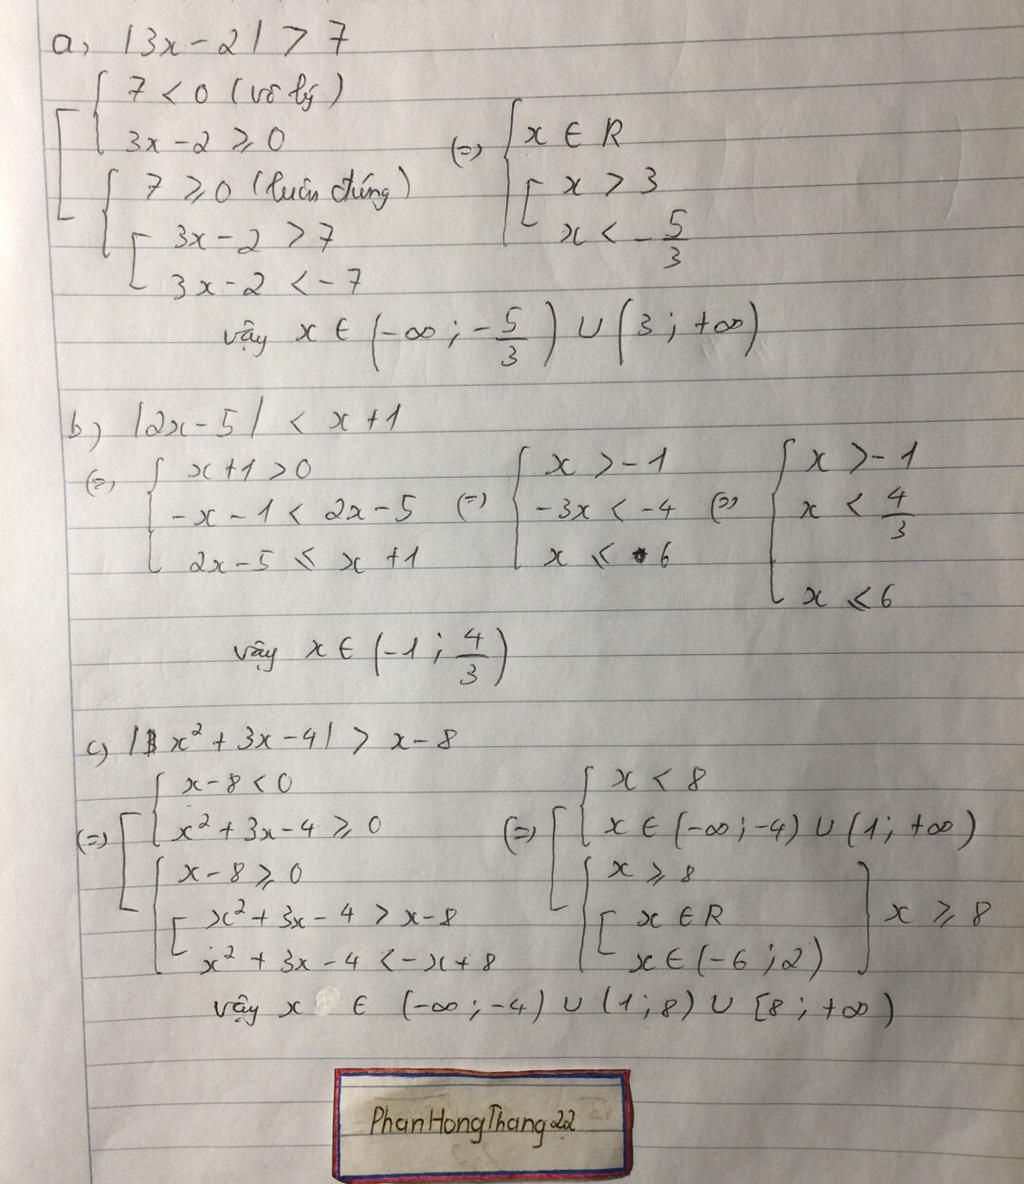 a, |3x - 2| > 7
7 < 0 (vô lý)
3x - 2 ⩾ 0
7 ⩾ 0 (luôn đúng)
3x - 2 > 7
3x - 2 < -7
(=) x ∈ R
x > 3
x < - 5/3
vậy x ∈ (-∞ ; - 5/3) ∪ (3 ; +∞)
b) |2x - 5| < x + 1
(=) x + 1 > 0
-x - 1 < 2x - 5
2x - 5 ⩽ x + 1
(=) x > -1
-3x < -4
x ⩽ 6
(=) x > -1
x < 4/3
x ⩽ 6
vậy x ∈ (-1 ; 4/3)
c) |x² + 3x - 4| > x - 8
(=) x - 8 < 0
x² + 3x - 4 ⩾ 0
x - 8 ⩾ 0
x² + 3x - 4 > x - 8
x² + 3x - 4 < -x + 8
(=) x < 8
x ∈ (-∞ ; -4) ∪ (1 ; +∞)
x ⩾ 8
x ∈ R
x ∈ (-6 ; 2)
x ⩾ 8
vậy x ∈ (-∞ ; -4) ∪ (1 ; 8) ∪ [8 ; +∞)
PhanHongThang22